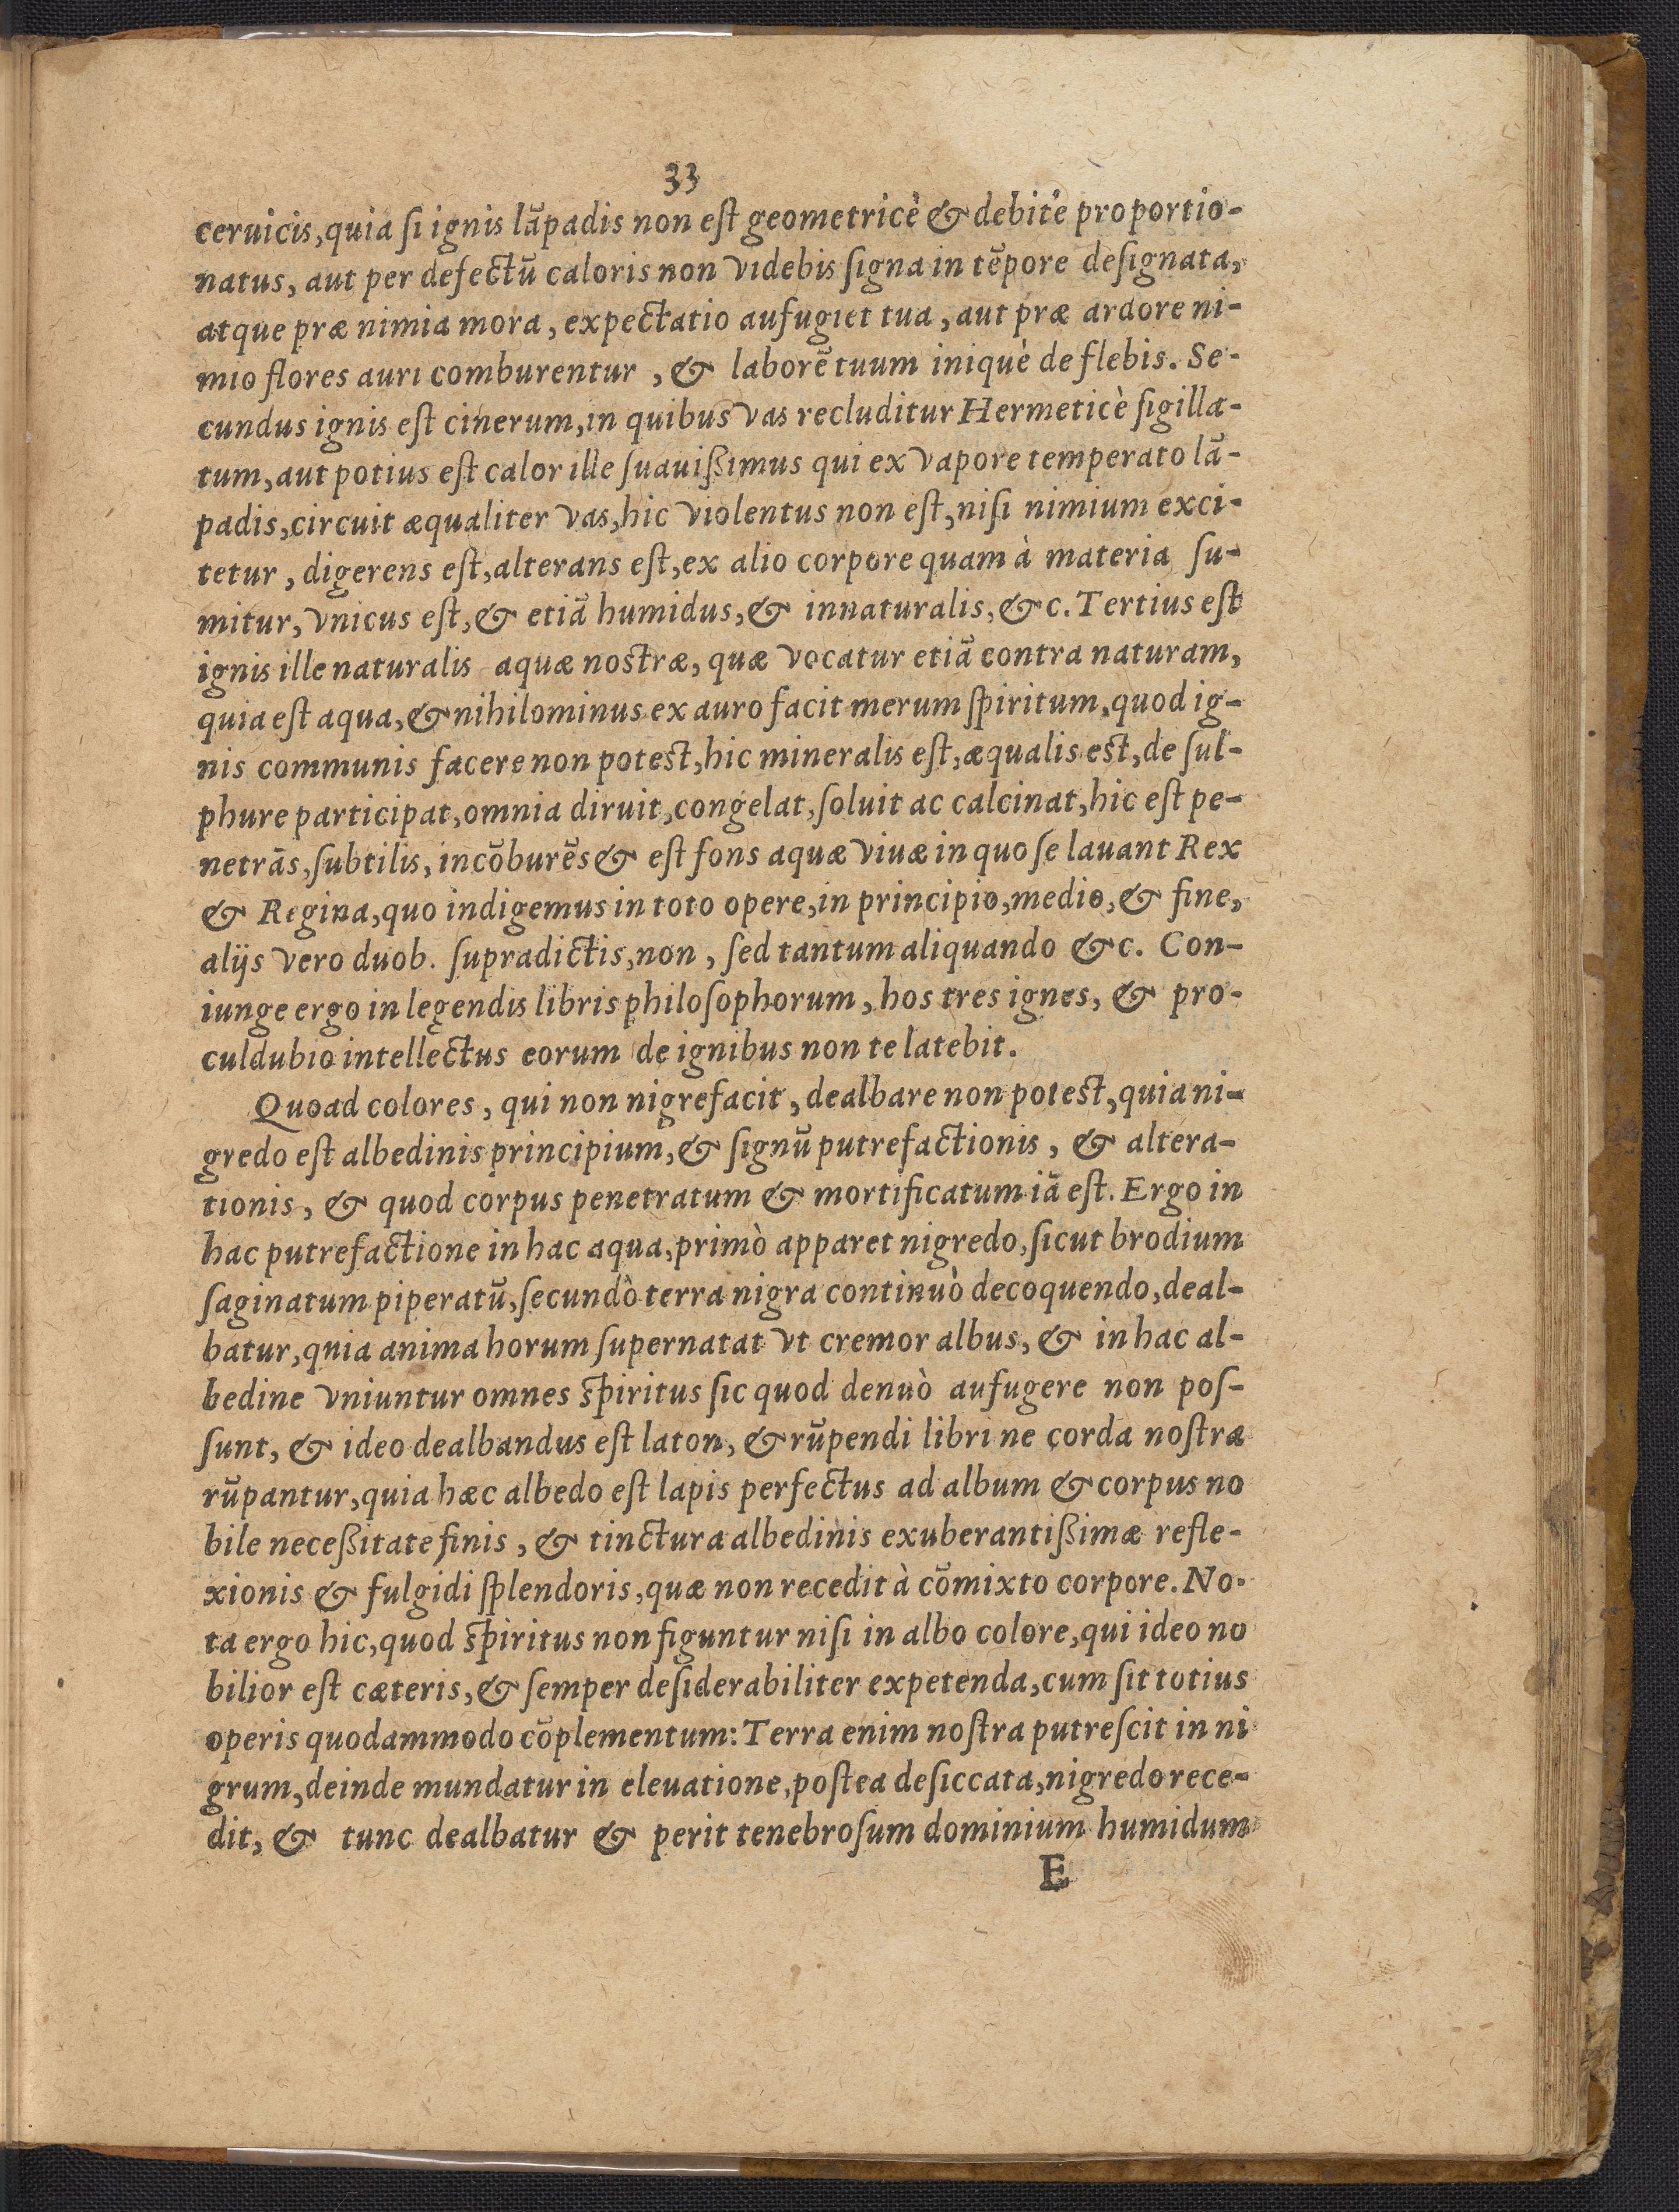 33
ceruicis,quia ſi ignis lãpadis non eſt geometricè & debitè proportio-
natus, aut per defectũ caloris non videbis ſigna in tẽpore deſignata,
atque præ nimia mora, expectatio aufugiet tua, aut præ ardore ni-
mio flores auri comburentur , & laborẽ tuum iniquè deflebis. Se-
cundus ignis eſt cinerum,in quibus vas recluditur Hermeticè ſigilla-
tum,aut potius eſt calor ille ſuauißimus qui ex vapore temperato lã-
padis,circuit æqualiter vas,hic violentus non eſt,niſi nimium exci-
tetur, digerens eſt,alterans eſt,ex alio corpore quam à materia ſu-
mitur, vnicus eſt,& etiã humidus,& innaturalis,&c. Tertius eſt
ignis ille naturalis aquæ nostræ, quæ vocatur etiã contra naturam,
quia est aqua,& nihilominus ex auro facit merum ſpiritum,quod ig-
nis communis facere non potest,hic mineralis eſt,æqualis est,de ſul-
phure participat,omnia diruit,congelat,ſoluit ac calcinat,hic eſt pe-
netrãs,ſubtilis,incõburẽs & eſt fons aquæ viuæ in quo ſe lauant Rex
& Regina,quo indigemus in toto opere,in principio,medio,& fine,
alijs vero duob. ſupradictis,non, ſed tantum aliquando &c. Con-
iunge ergo in legendis libris philoſophorum, hos tres ignes, & pro-
culdubio intellectus eorum de ignibus non te latebit.
Quoad colores, qui non nigrefacit, dealbare non potest,quia ni-
gredo eſt albedinis principium,& ſignũ putrefactionis, & altera-
tionis, & quod corpus penetratum & mortificatum iã eſt. Ergo in
hac putrefactione in hac aqua,primò apparet nigredo,ſicut brodium
ſaginatum piperatũ,ſecundò terra nigra continuò decoquendo,deal-
batur,qnia anima horum ſupernatat vt cremor albus, & in hac al-
bedine vniuntur omnes ſpiritus ſic quod denuò aufugere non poſ-
ſunt, & ideo dealbandus eſt laton, & rũpendi libri ne corda noſtra
rũpantur,quia hæc albedo eſt lapis perfectus ad album & corpus no
bile neceßitate finis, & tinctura albedinis exuberantißimæ refle-
xionis & fulgidi ſplendoris,quæ non recedit à cõmixto corpore. No-
ta ergo hic,quod ſpiritus non figuntur niſi in albo colore,qui ideo no
bilior eſt cæteris,& ſemper deſiderabiliter expetenda,cum ſit totius
operis quodammodo cõplementum: Terra enim noſtra putreſcit in ni
grum,deinde mundatur in eleuatione,poſtea deſiccata,nigredo rece-
dit, & tunc dealbatur & perit tenebroſum dominium humidum
E